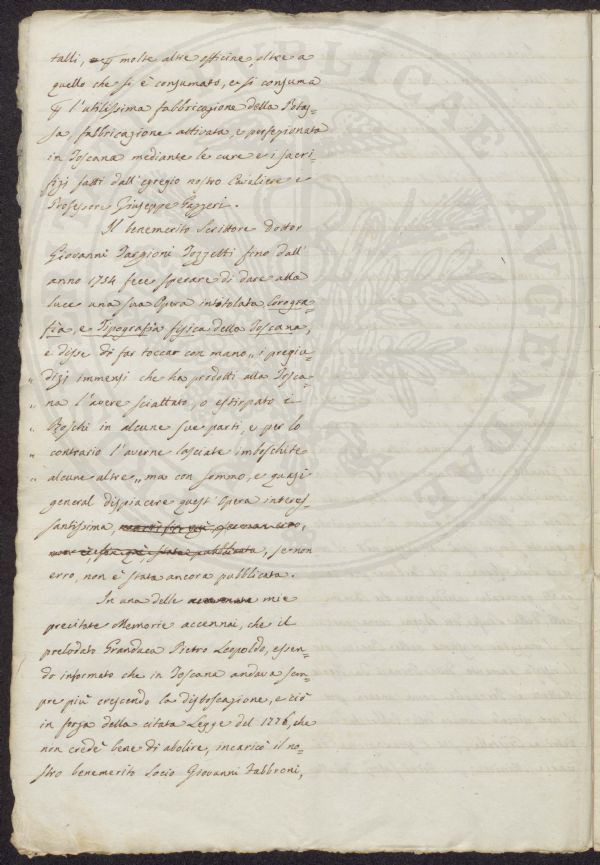 talli, e ꝑ molte altre officine oltre a
quello che si è consumato, e si consuma
ꝑ l'utilissima fabbricazione della Potas-
sa, fabbricazione attivata, e perfezionata
in Toscana mediante le cure e i sacri-
fizj fatti dall'egregio nostro Cavaliere e
Professore Giuseppe Gazzeri.
Il benemerito Scrittore Dottor
Giovanni Targioni Tozzetti fino dall'
anno 1754 fece sperare di dare alla
luce una sua Opera intitolata Corogra-
fia, e Topografia fisica della Toscana,
e disse di far toccar con mano „ i pregiu-
„ dizj immensi che ha prodotti alla Tosca-
„ na l'avere sciattato, o estirpato i
„ Boschi in alcune sue parti, e per lo
„ contrario l'averne lasciate imboschite
„ alcune altre „ ma con sommo, e quasi
general dispiacere quest'Opera interes-
santissima, se non
erro, non è stata ancora pubblicata.
In una delle mie
precitate Memorie accennai, che il
prelodato Granduca Pietro Leopoldo, essen-
do informato che in Toscana andava sem-
pre più crescendo la disboscazione, e ciò
in forza della citata Legge del 1776, che
non credè bene di abolire, incaricò il no-
stro benemerito Socio Giovanni Fabbroni,
PUBLICAE
AUGENDAE